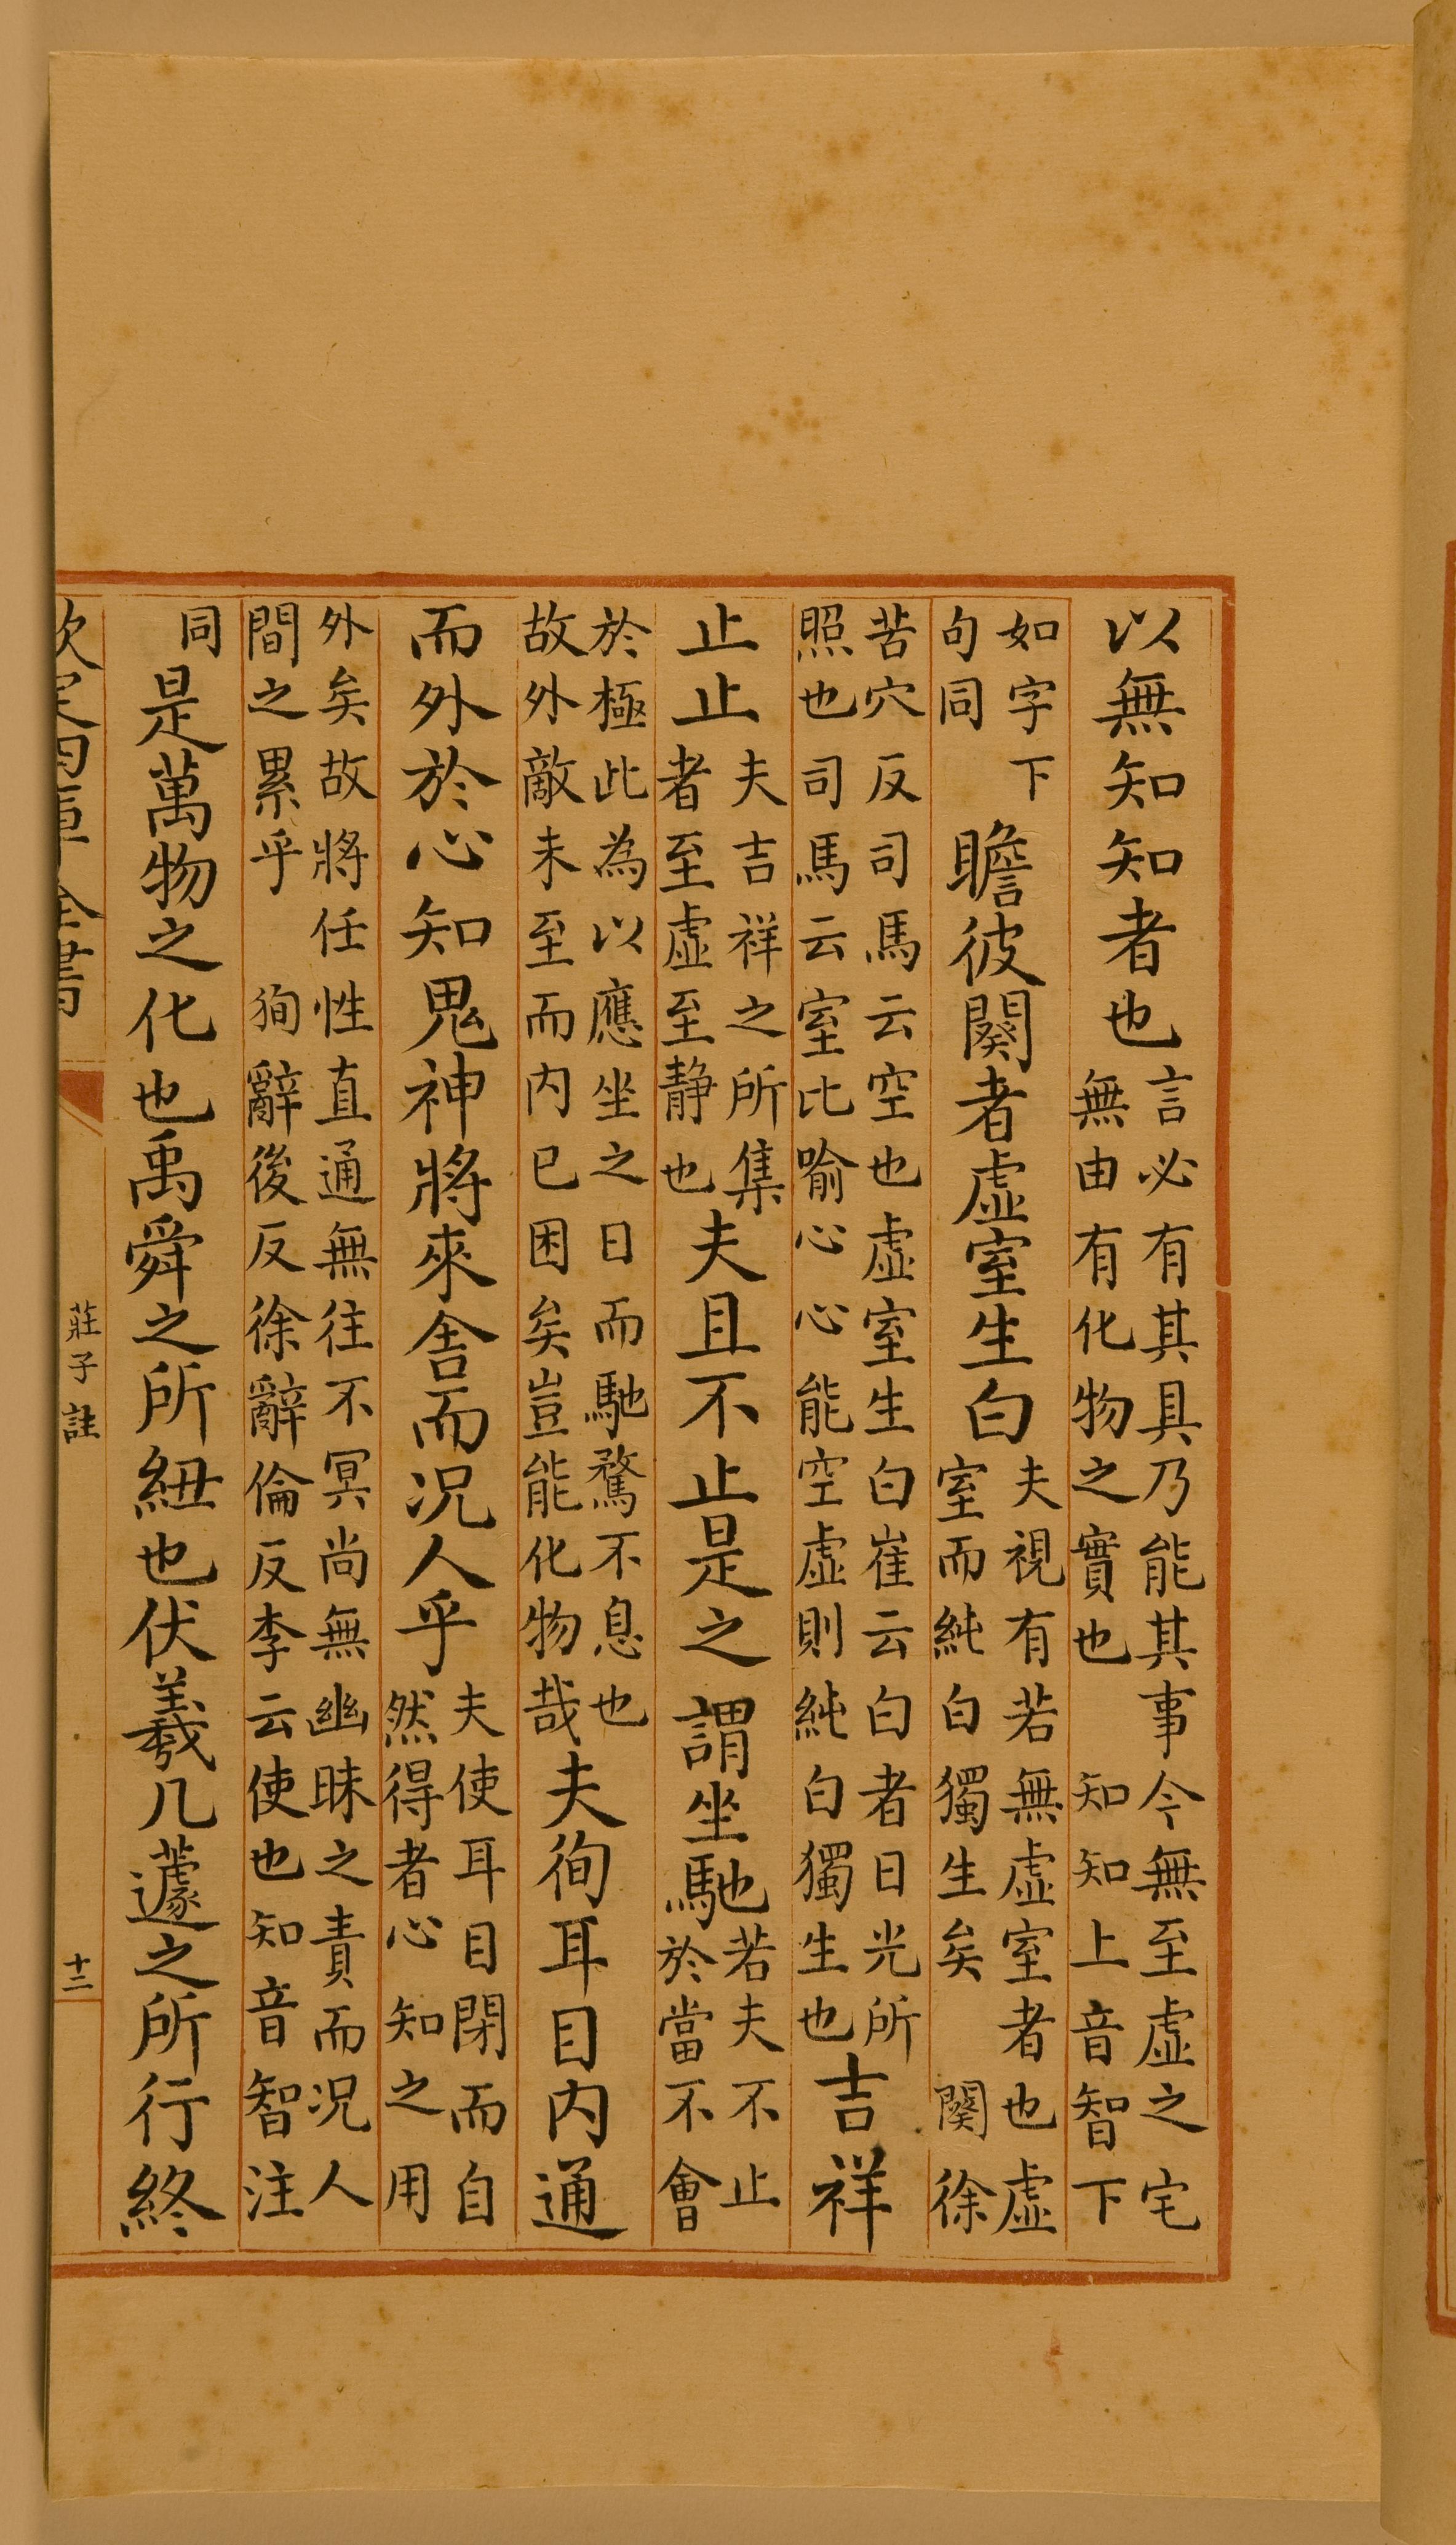 以無知知者也言必有其具乃能其事今無至虛之宅無由有化物之實也　知知上音智下
如字下句同　瞻彼闋者虛室生白夫視有若無虛室者也虛室而純白獨生矣　闋徐
苦穴反司馬云空也虛室生白崔云白者日光所照也司馬云室比喻心心能空虛則純白獨生也吉祥
止止夫吉祥之所集者至虛至靜也夫且不止是之謂坐馳若夫不止於當不會
於極此為以應坐之日而馳騖不息也故外敵未至而内已困矣豈能化物哉夫徇耳目内通
而外於心知鬼神將來舍而况人乎夫使耳目閉而自然得者心知之用
外矣故將任性直通無往不冥尚無幽昧之責而况人間之累乎　狥辭後反徐辭倫反李云使也知音智注
同　是萬物之化也禹舜之所紐也伏羲几蘧之所行終
欽定四庫全書　莊子註　十二